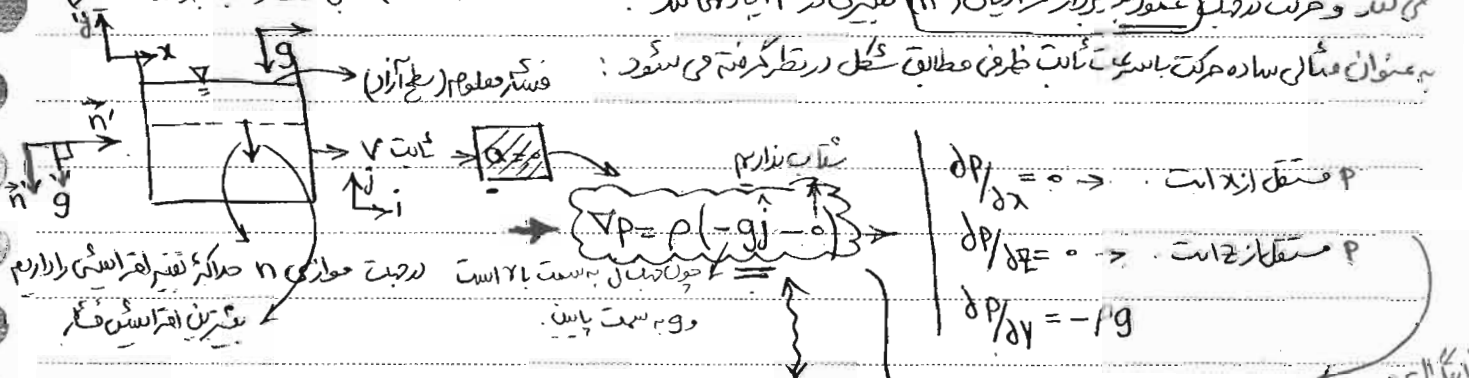 می کند و حرکت در جهت عمود بر بردار گرادیان (n) تغییری در P ایجاد نمی کند.
به عنوان مثالی ساده حرکت با سرعت ثابت ظرفی مطابق شکل در نظر گرفته می شود:
y
x
g
فشار معلوم (سطح آزاد)
n'
n g
V ثابت
a = 0
j
i
شتاب نداریم
∇P = ρ(-gĵ - 0)
∂P/∂x = 0 → P مستقل از x است.
∂P/∂z = 0 → P مستقل از z است.
∂P/∂y = -ρg
در جهت موازی n حداکثر تغییر افزایشی را داریم
بیشترین افزایش فشار
چون جهت j به سمت بالا است
و g به سمت پایین.